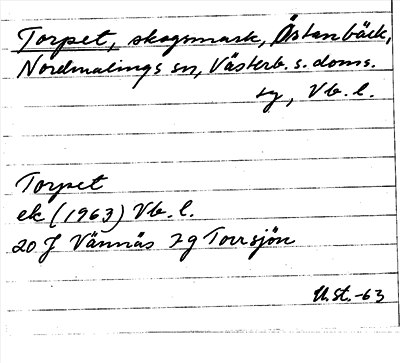 Torpet, skogsmark, Östanbäck,
Nordmalings sn, Västerb. s. doms.
sg, Vb. l.
Torpet
ek (1963) Vb. l.
20 J Vännäs 7g Torrsjön
U.st.-63